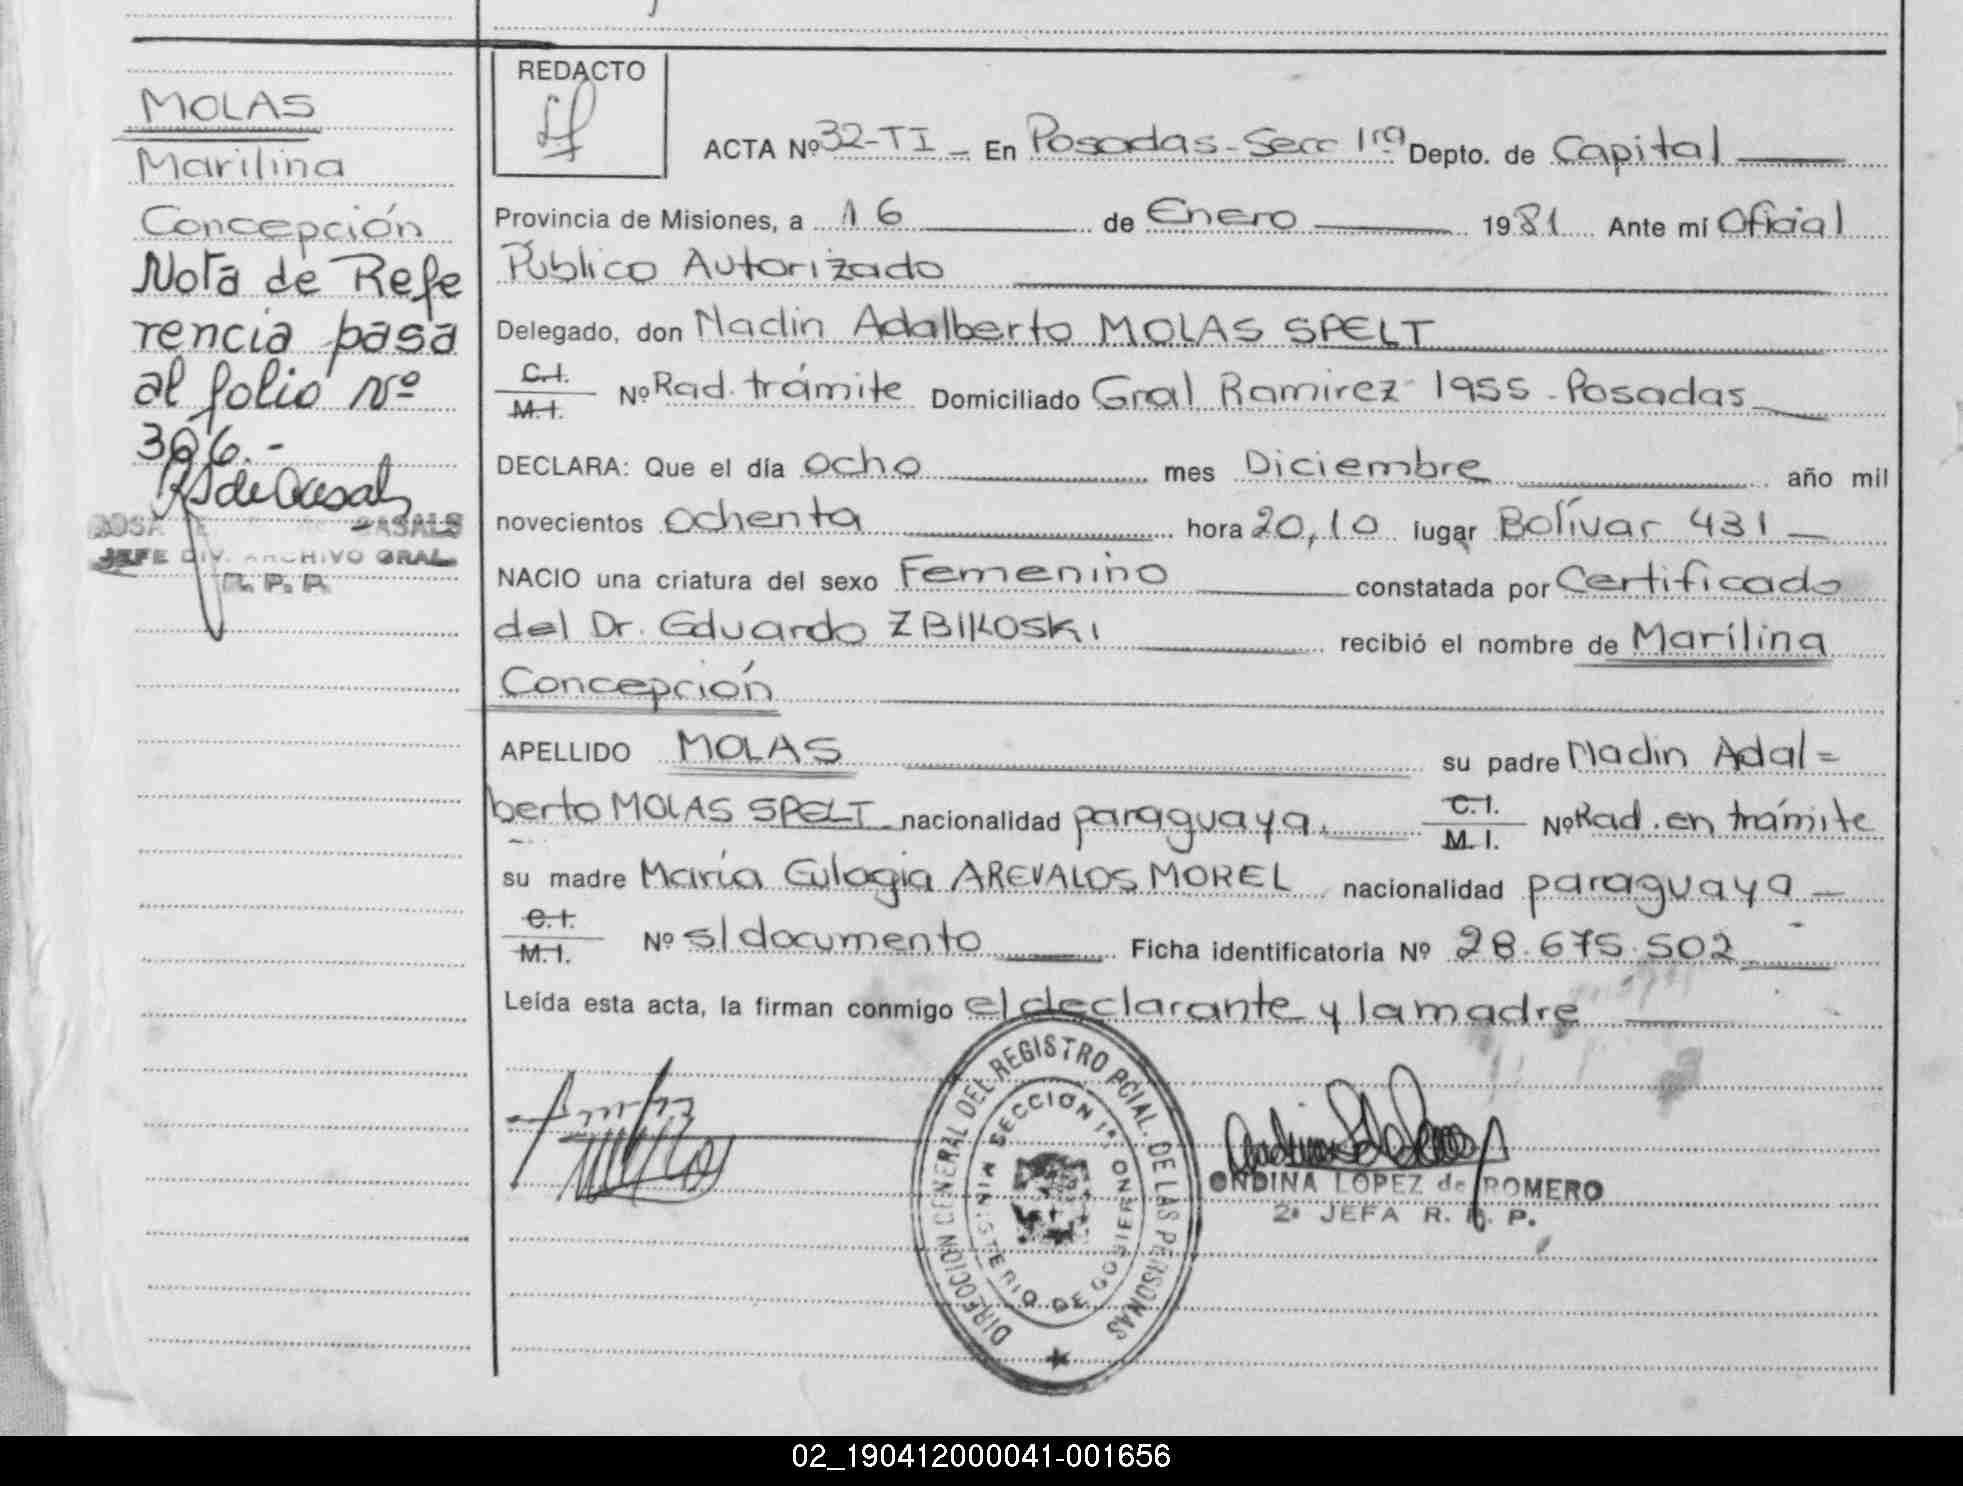 MOLAS
Marilina
Concepción
Nota de Refe
rencia pasa
al folio Nº
396.-
JEFE DIV. ARCHIVO GRAL.
R. P. P.
REDACTO
ACTA Nº 32-TI - En Posadas-Secc 1ra Depto. de Capital
Provincia de Misiones, a 16 de Enero 1981 Ante mí Oficial
Público Autorizado
Delegado, don Nadin Adalberto MOLAS SPELT
C.I.
M.I. Nº Rad. trámite Domiciliado Gral Ramirez 1955 - Posadas
DECLARA: Que el día ocho mes Diciembre año mil
novecientos ochenta hora 20,10 lugar Bolívar 431
NACIO una criatura del sexo Femenino constatada por Certificado
del Dr. Eduardo ZBIKOSKI recibió el nombre de Marilina
Concepción
APELLIDO MOLAS su padre Nadin Adal=
berto MOLAS SPELT nacionalidad paraguaya. C.I.
M.I. Nº Rad. en trámite
su madre María Eulogia AREVALOS MOREL nacionalidad paraguaya
C.I.
M.I. Nº s/documento Ficha identificatoria Nº 28.675.502
Leída esta acta, la firman conmigo el declarante y la madre
DIRECCION GENERAL DEL REGISTRO PCIAL. DE LAS PERSONAS
SECCION 1ª
MINISTERIO DE GOBIERNO
ONDINA LOPEZ de ROMERO
2ª JEFA R. P. P.
02_190412000041-001656